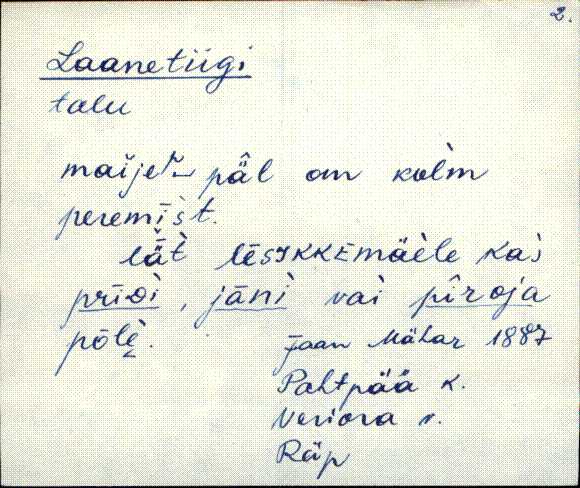 2.
Laanetiigi
talu
päl om kolm
peremīst.
lǟt lēsikkemäele kas
prīdi, jāni vai pīroja
põlè.
Jaan Mähar 1887
Pahtpää k.
Veriora v.
Räp